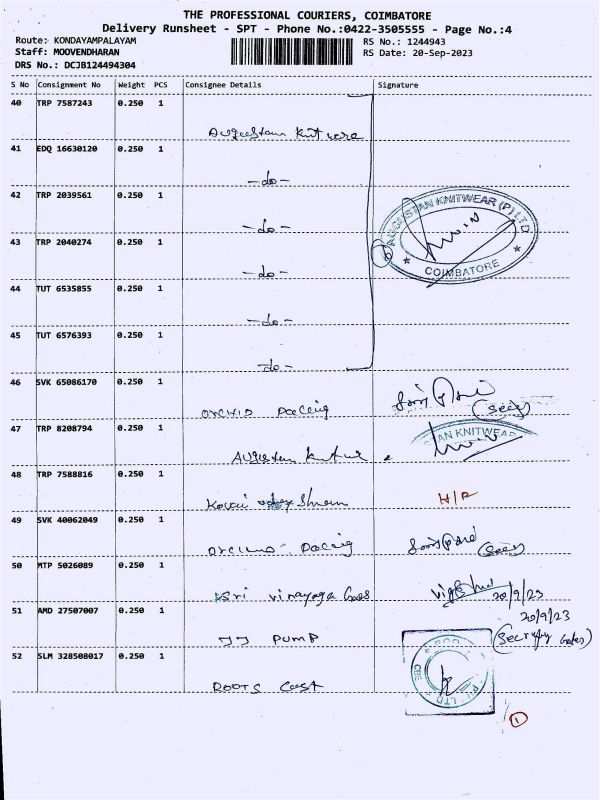 THE PROFESSIONAL COURIERS, COIMBATORE
Delivery Runsheet - SPT - Phone No.:0422-3505555 - Page No.:4
Route: KONDAYAMPALAYAM RS No.: 1244943
Staff: MOOVENDHARAN RS Date: 20-Sep-2023
DRS No.: DCJB124494304
S No Consignment No Weight PCS Consignee Details Signature
40 TRP 7587243 0.250 1
Augustan Knit were
41 EDQ 16630120 0.250 1
-do-
42 TRP 2039561 0.250 1
-do-
AUGUSTAN KNITWEAR (P) LTD
COIMBATORE
43 TRP 2040274 0.250 1
-do-
44 TUT 6535855 0.250 1
-do-
45 TUT 6576393 0.250 1
-do-
46 SVK 65086170 0.250 1
orchid Paccing
47 TRP 8208794 0.250 1
TAN KNITWEAR
Augustan
48 TRP 7588816 0.250 1
Kovai
49 SVK 40062049 0.250 1
Paccing
50 MTP 5026089 0.250 1
Sri Vinayaga Gas 20/9/23
51 AMD 27507007 0.250 1
20/9/23
JJ PUMP
52 SLM 328508017 0.250 1
ROOTS Cast
1